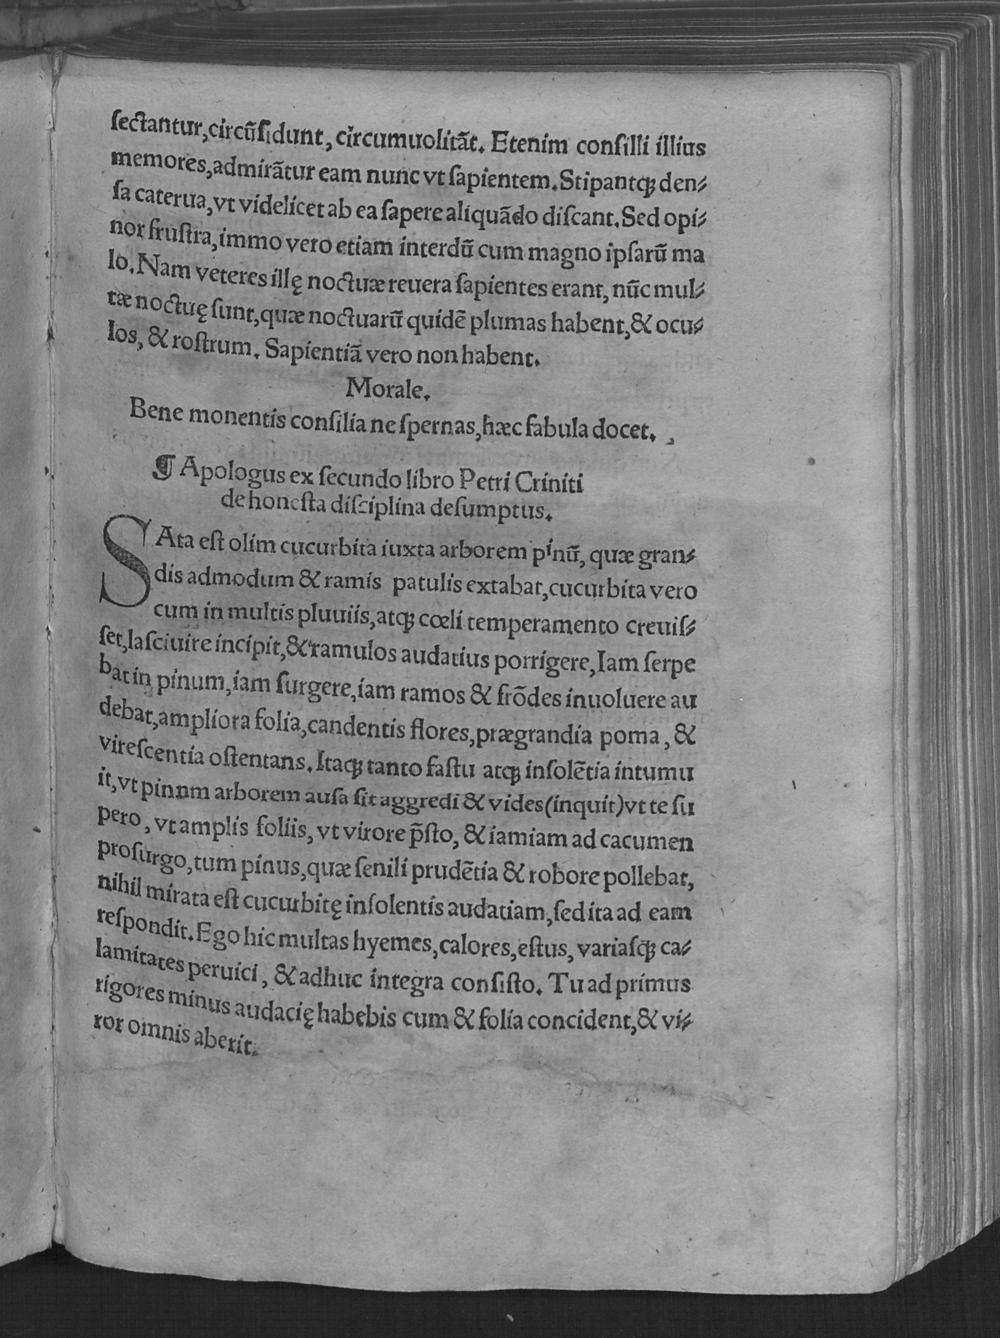 ſectantur,circũſidunt, circumuolitãt. Etenim conſilli illius
memores,admirãtur eam nunc vt ſapientem.Stipantꝗ; den⸗
ſa caterua,vt videlicet ab ea ſapere aliquãdo diſcant.Sed opi⸗
nor fruſtra,immo vero etiam interdũ cum magno ipſarũ ma
lo.Nam veteres illę noctuæ reuera ſapientes erant, nũc mul⸗
tæ noctuę ſunt,quæ noctuarũ quidẽ plumas habent,& ocu⸗
los, & roſtrum. Sapientiã vero non habent.
Morale.
Bene monentis conſilia ne ſpernas,hæc fabula docet.
¶ Apologus ex ſecundo libro Petri Criniti
de honeſta diſciplina deſumptus.
SAta eſt olim cucurbita iuxta arborem pinũ, quæ gran⸗
dis admodum & ramis patulis extabat,cucurbita vero
cum in multis pluuiis,atꝗ; cœli temperamento creuiſ⸗
ſet,laſciuire incipit,& ramulos audatius porrigere,Iam ſerpe
bat in pinum,iam ſurgere,iam ramos & frõdes inuoluere au
debat,ampliora folia,candentis flores,prægrandia poma, &
vireſcentia oſtentans.Itaꝗ; tanto faſtu atꝗ; inſolẽtia intumu
it,vt pinnm arborem auſa ſit aggredi & vides(inquit)vt te ſu
pero, vt amplis foliis, vt virore p̃ſto, & iamiam ad cacumen
proſurgo,tum pinus,quæ ſenili prudẽtia & robore pollebat,
nihil mirata eſt cucurbitę inſolentis audatiam,ſed ita ad eam
reſpondit.Ego hic multas hyemes,calores,eſtus, variaſꝗ; ca⸗
lamitates peruici, & adhuc integra conſiſto. Tu ad primus
rigores minus audacię habebis cum & folia concident,& vi⸗
ror omnis aberit.